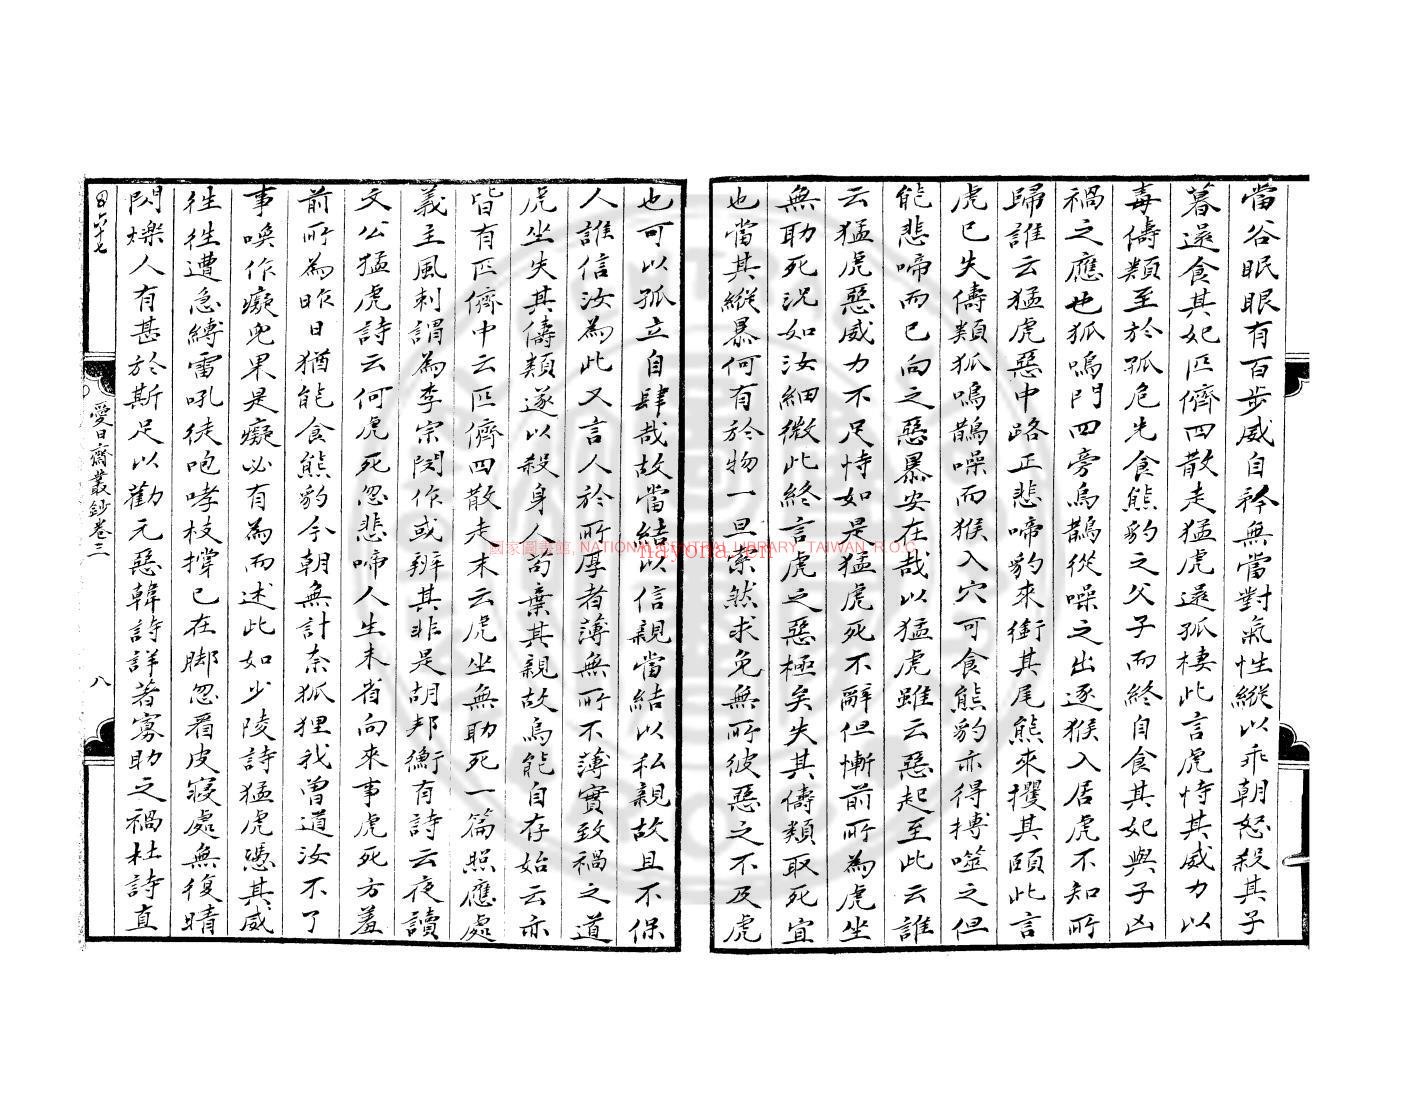 當谷眠眼有百步威自矜無當對氣性縱以乖朝怒殺其子
暮還食其妃匹儕四散走猛虎還孤棲此言虎恃其威力以
毒儔類至於孤危先食熊豹之父子而終自食其妃與子凶
禍之應也狐鳴門四旁烏鵲從噪之出逐猴入居虎不知所
歸誰云猛虎惡中路正悲啼豹來銜其尾熊來攫其頤此言
虎已失儔類狐鳴鵲噪而猴入穴可食熊豹亦得搏噬之但
能悲啼而已向之惡暴安在哉以猛虎雖云惡起至此云誰
云猛虎惡威力不足恃如是猛虎死不辭但慚前所為虎坐
無助死況如汝細微此終言虎之惡極矣失其儔類取死宜
也當其縱暴何有於物一旦索然求免無所彼惡之不及虎
也可以孤立自肆哉故當結以信親當結以私親故且不保
人誰信汝為此又言人於所厚者薄無所不薄實致禍之道
虎坐失其儔類遂以殺身人苟棄其親故烏能自存始云亦
皆有匹儕中云匹儕四散走末云虎坐無助死一篇照應處
義主風刺謂為李宗閔作或辨其非是胡邦衡有詩云夜讀
文公猛虎詩云何虎死忽悲啼人生未省向來事虎死方羞
前所為昨日猶能食熊豹今朝無計奈狐狸我曾道汝不了
事喚作癡兒果是癡必有為而述此如少陵詩猛虎憑其威
往往遭急縛雷吼徒咆哮枝撐已在腳忽看皮寢處無復睛
閃爍人有甚於斯足以勸元惡韓詩詳著寡助之禍杜詩直
愛日齋叢鈔卷三
八